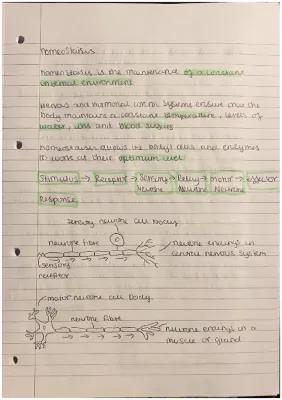 Homeostasis
Homeostasis is the maintenance of a constant
internal environment
Nervous and hormonal control systems ensure that the
body maintains a constant temperature, levels of
water, ions and blood sugars
Homeostasis allows the body's cells and enzymes
to work at their optimum level
Stimulus → Receptor → Sensory Neurone → Relay Neurone → Motor Neurone → effector
Response
sensory neurone cell body
neurone fibre
neurone endings in
central nervous system
sensory
receptor
motor neurone cell body
neurone fibre
neurone endings in a
muscle or gland